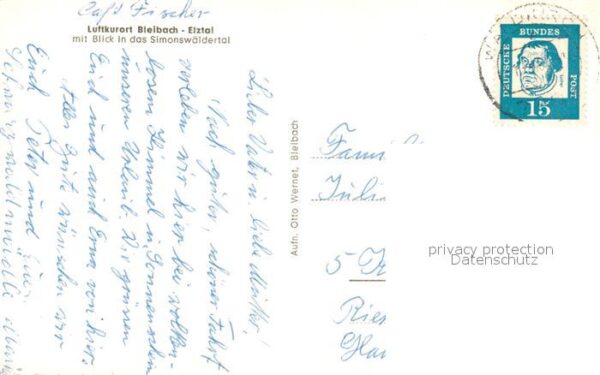 Café Fischer
Luftkurort Bleibach - Elztal
mit Blick in das Simonswäldertal
Lieber Vater u. liebe Mutter!
Nach guter, schöner Fahrt
verleben wir hier bei wolken-
losem Himmel u. Sonnenschein
unseren Urlaub. Wir grüssen
Euch und auch Erna von hier.
Alles Gute wünschen wir
Euch Peter und
Schwarzwaldmädle
Aufn. Otto Wernet, Bleibach
DEUTSCHE BUNDES POST
15
Fami
Juli
5
Ries
privacy protection
Datenschutz